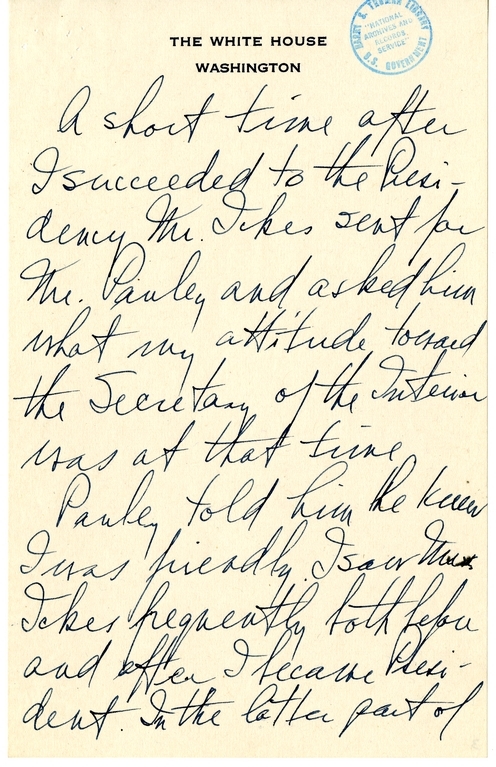 THE WHITE HOUSE
WASHINGTON
HARRY S. TRUMAN LIBRARY
"NATIONAL
ARCHIVES AND
RECORDS
SERVICE"
U.S. GOVERNMENT
A short time after
I succeeded to the Presi-
dency Mr. Ickes sent for
Mr. Pauley and asked him
what my attitude toward
the Secretary of the Interior
was at that time
Pauley told him the knew
I was friendly. I saw Mr.
Ickes frequently both before
and after I became Presi-
dent. In the latter part of